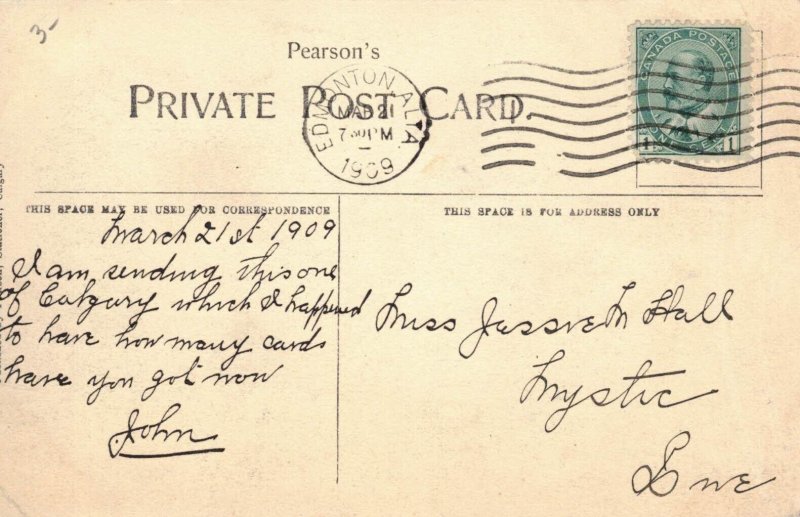 3-
Pearson's
PRIVATE POST CARD.
EDMONTON, ALTA
MAR 21
7 30 PM
1909
CANADA POSTAGE
ONE CENT
1 1
THIS SPACE MAY BE USED FOR CORRESPONDENCE
THIS SPACE IS FOR ADDRESS ONLY
March 21st 1909
I am sending this one
of Calgary which I happened
to have how many cards
have you got now
John
Miss Jessie M Hall
Mystic
Que
Stationer, Calgary